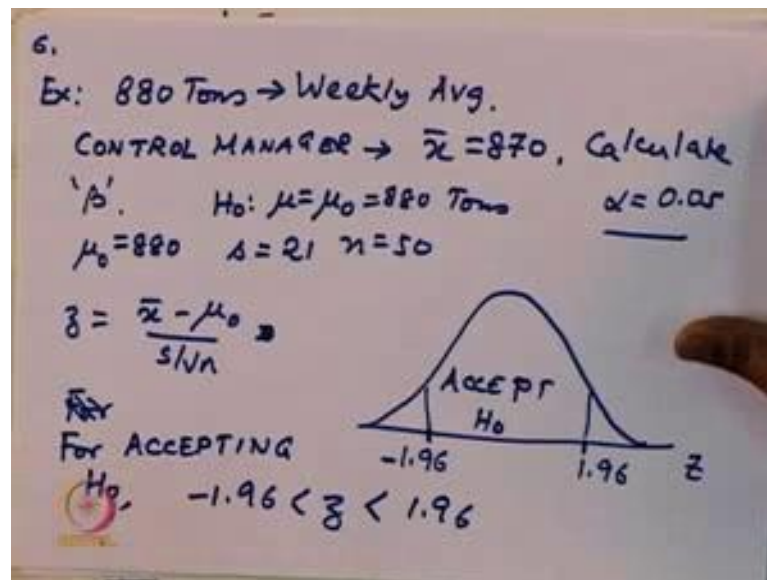 6.
Ex: 880 Tons → Weekly Avg.
CONTROL MANAGER → x̄ = 870, Calculate
'β'. H₀: μ = μ₀ = 880 Tons α = 0.05
μ₀ = 880 s = 21 n = 50
z = (x̄ - μ₀) / (s/√n)
For
For ACCEPTING
H₀, -1.96 < z < 1.96
ACCEPT
H₀
-1.96 1.96 Z